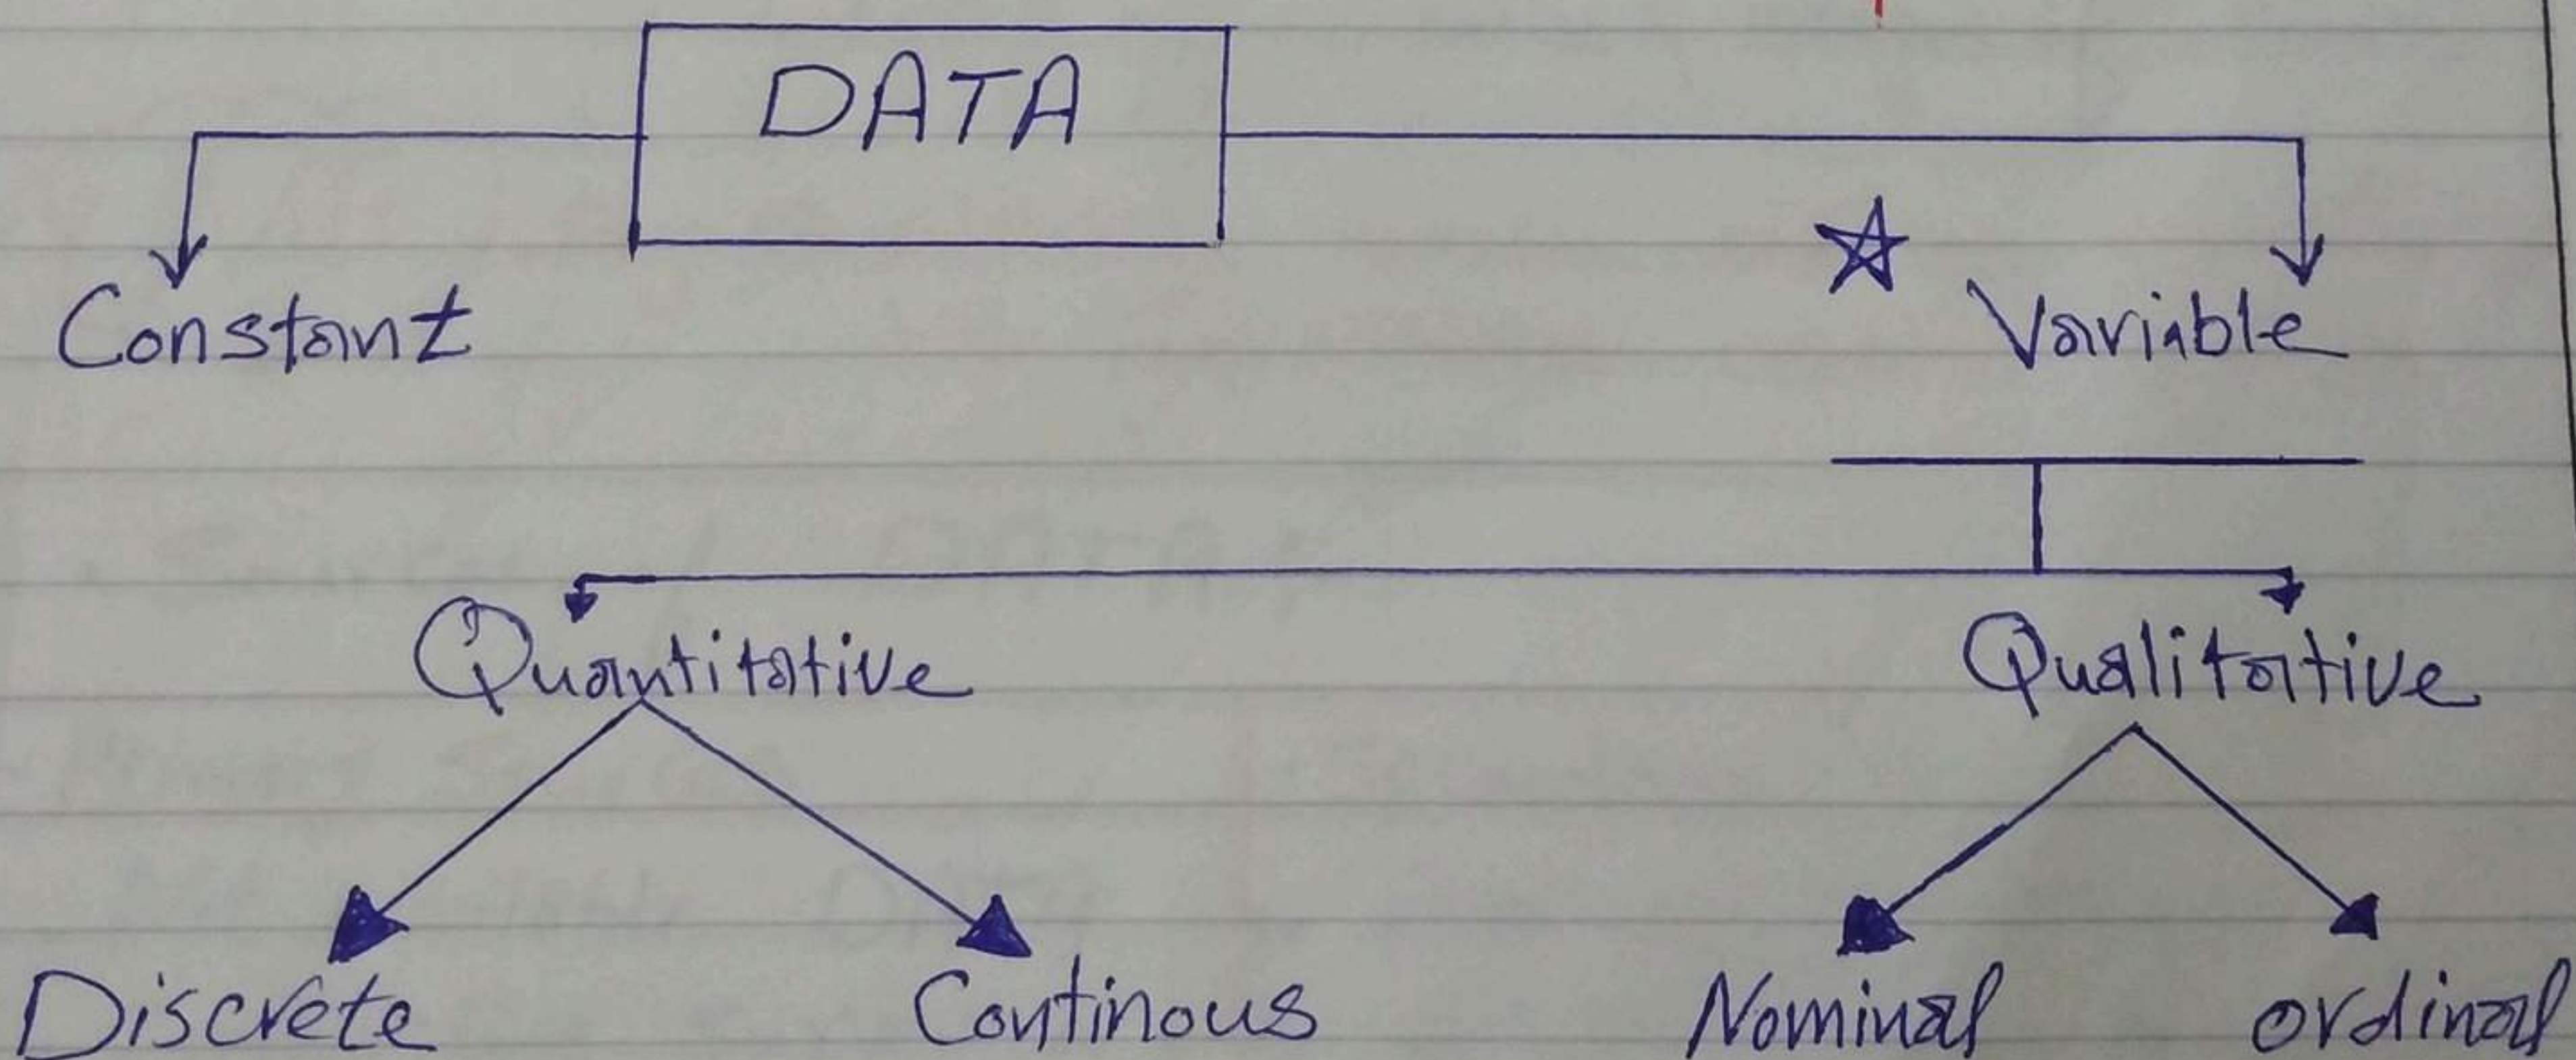 DATA
Constant Variable
Quantitative Qualitative
Discrete Continous Nominal ordinal